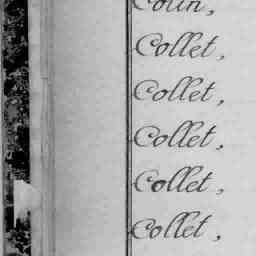 Colin,
Collet,
Collet,
Collet,
Collet,
Collet,